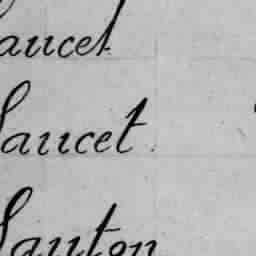 aucet
Saucet
Sauton